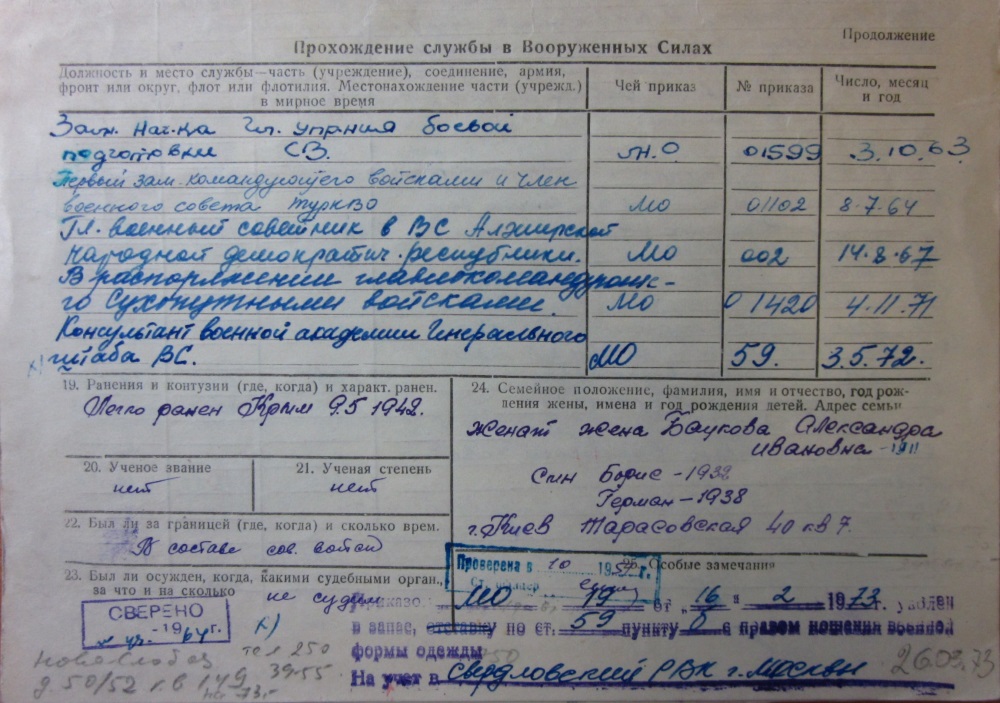 Продолжение
Прохождение службы в Вооруженных Силах
Должность и место службы—часть (учреждение), соединение, армия,
фронт или округ, флот или флотилия. Местонахождение части (учрежд.)
в мирное время
Чей приказ
№ приказа
Число, месяц
и год
Зам. нач-ка Гл. упр-ния боевой
подготовки СВ. 01599 3.10.63
Первый зам. командующего войсками и член
военного совета ТуркВО МО 01102 8.7.64
Гл. военный советник в ВС Алжирской
народной демократич. республики. МО 002 14.8.67
В распоряжении главнокомандующе-
го Сухопутными войсками. МО 01420 4.11.71
Консультант военной академии Генерального
штаба ВС. МО 59. 3.5.72.
19. Ранения и контузии (где, когда) и характ. ранен.
Легко ранен Крым 9.5 1942.
20. Ученое звание
нет
21. Ученая степень
нет
22. Был ли за границей (где, когда) и сколько врем.
В составе сов. войск
23. Был ли осужден, когда, какими судебными орган.,
за что и на сколько не судим
СВЕРЕНО
1964 г.
х)
тел 250
39-55
д. 50/52 кв 149
24. Семейное положение, фамилия, имя и отчество, год рож-
дения жены, имена и год рождения детей. Адрес семьи
Женат жена Баукова Александра
Ивановна - 1911
Сын Борис - 1932
Герман - 1938
г. Киев Тарасовская 40 кв 7.
Проверена в 10 1957 г.
25. Особые замечания
Приказом МО от „16" 2 1973 г. уволен
в запас, отставку по ст. 59 пункту б с правом ношения военной
формы одежды
На учет в Свердловский РВК г. Москвы
26.03.73